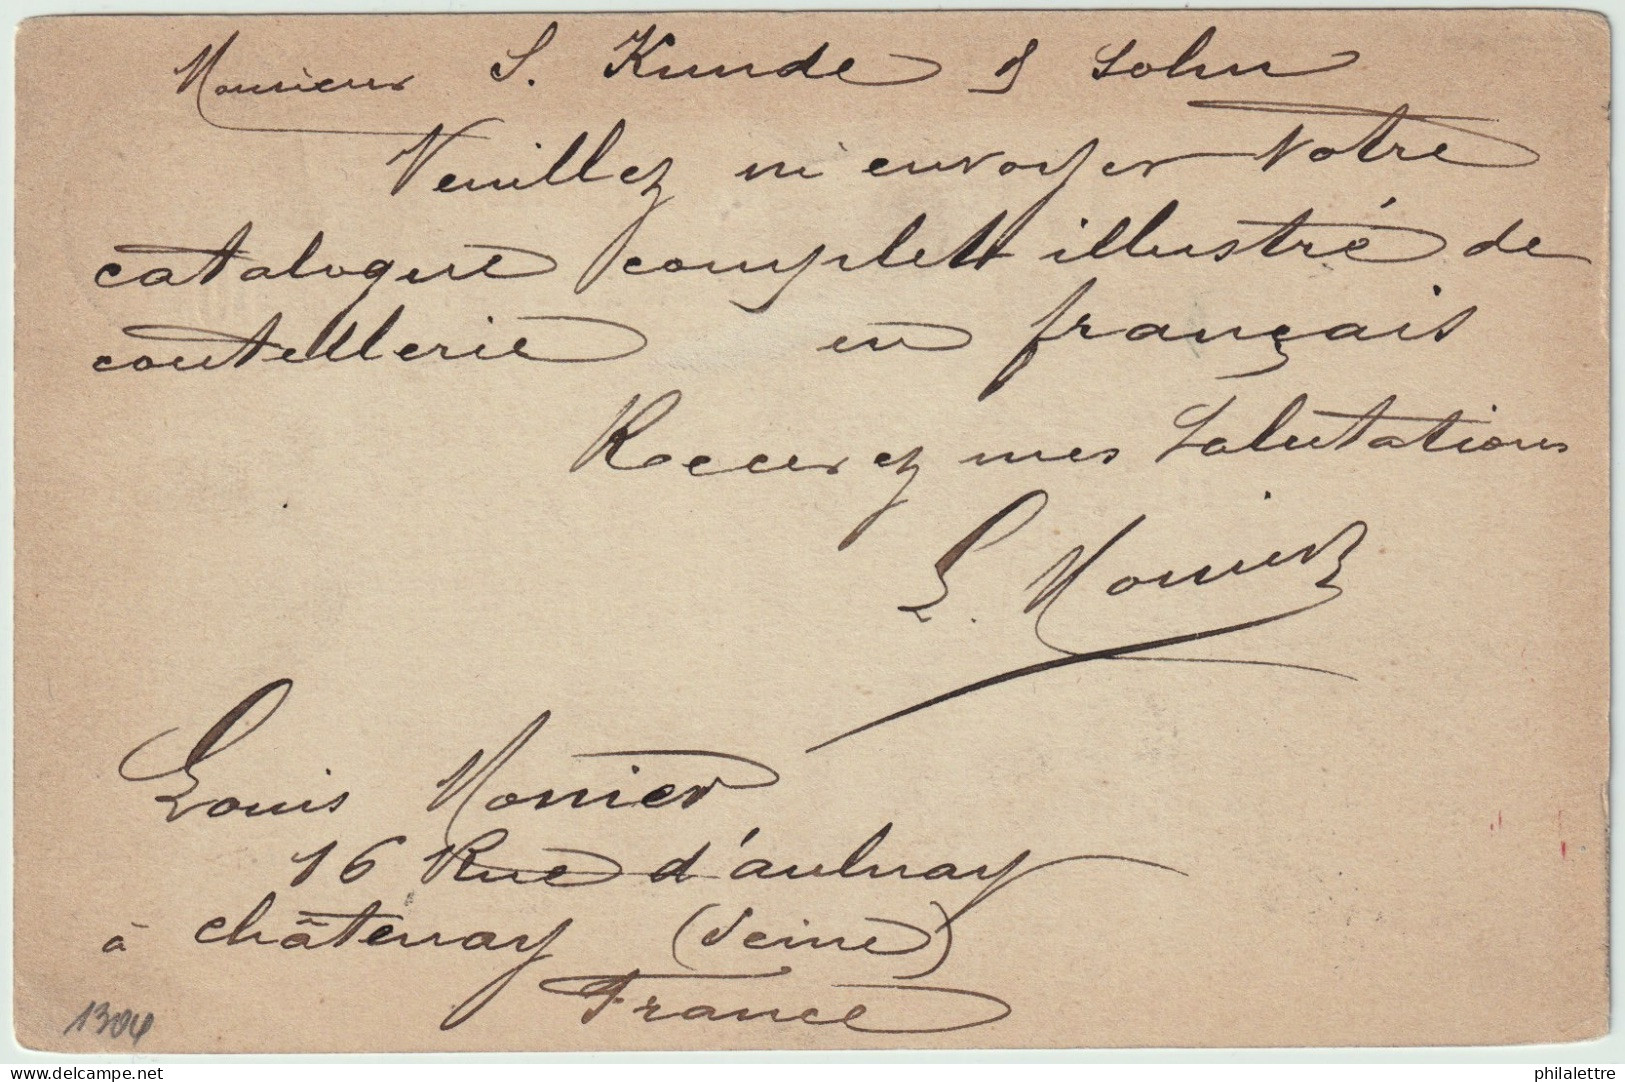 Monsieur S. Kunde & Sohn
Veuillez m'envoyer votre
catalogue complet illustré de
coutellerie en français
Recevez mes salutations
L. Monier
Louis Monier
16 Rue d'aulnay
à châtenay (Seine)
France
1304
delcampe.net
philalettre